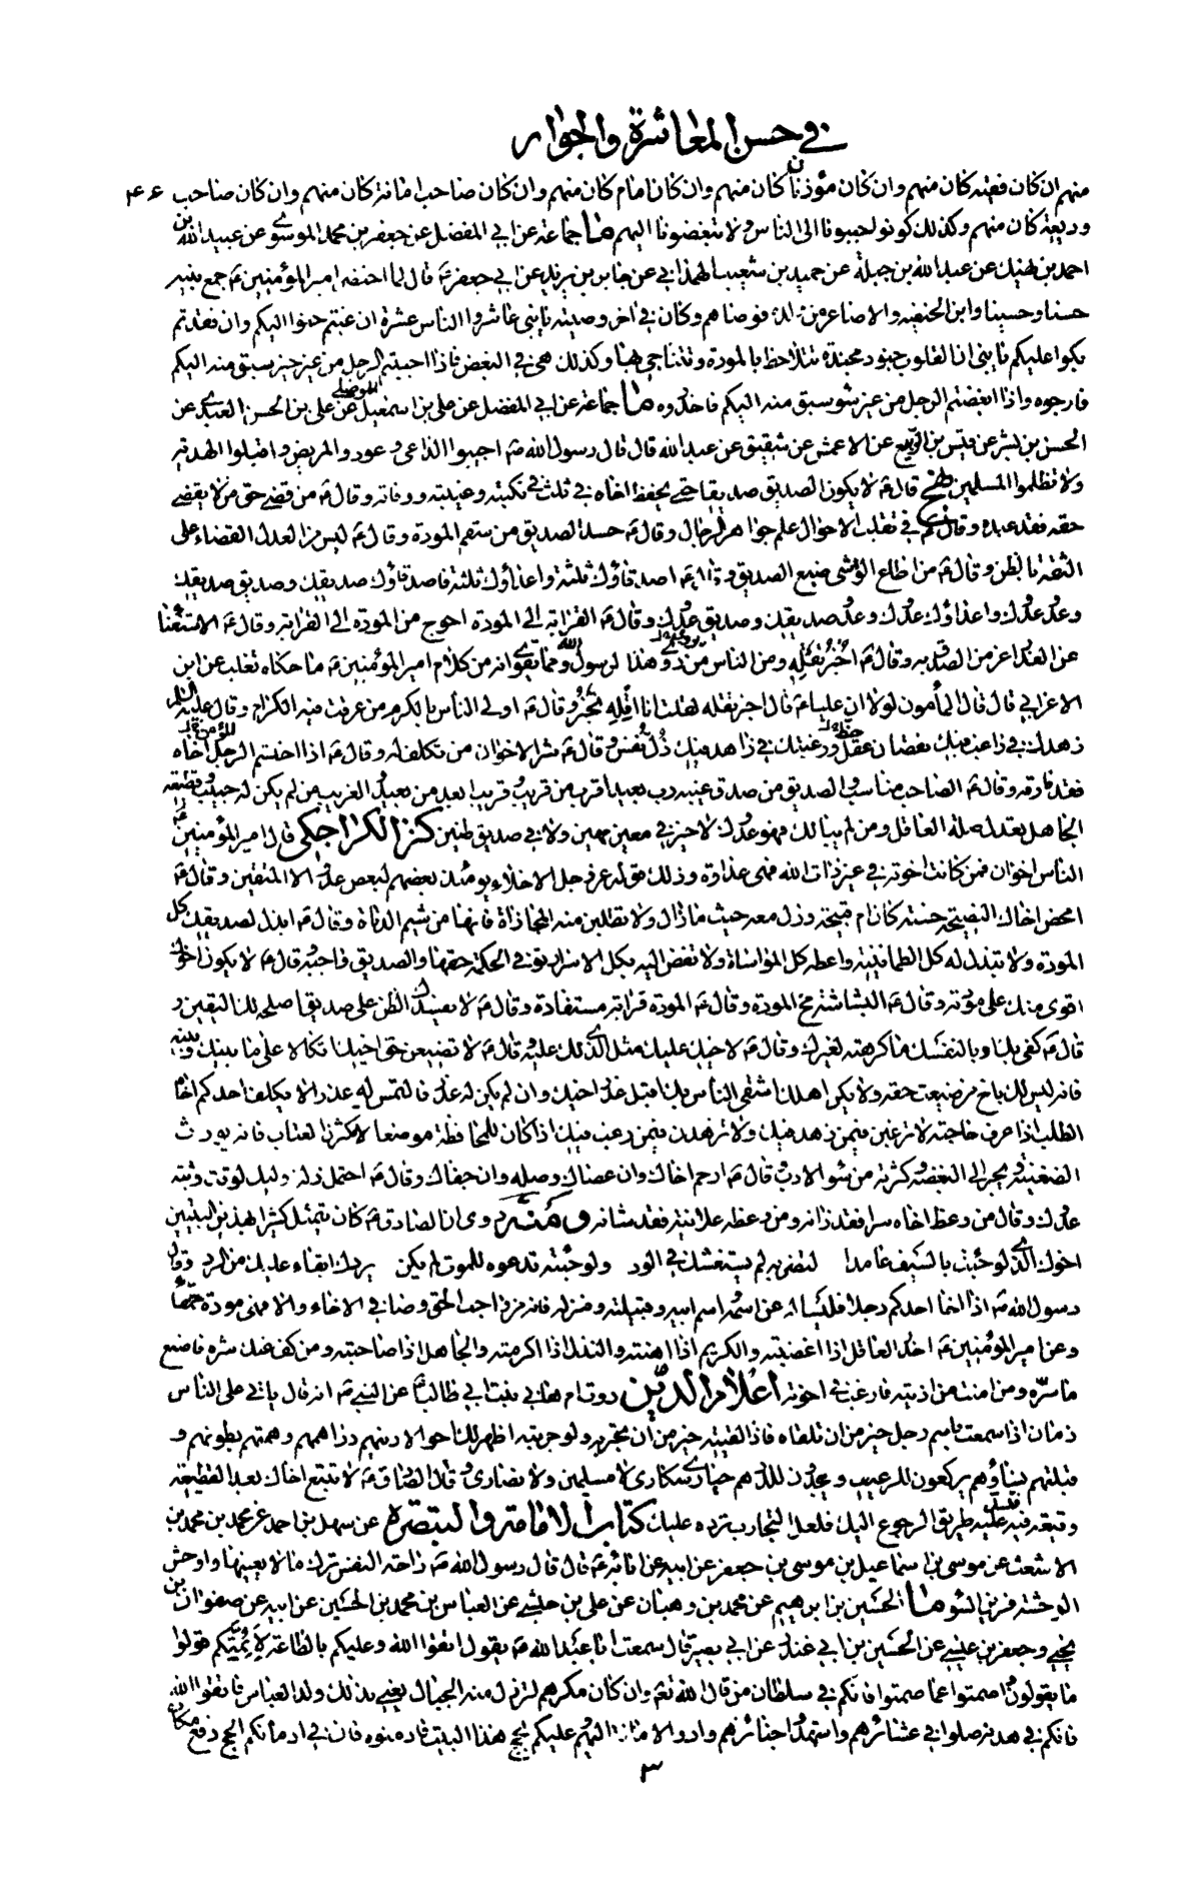 في حسن المعاشرة والجوار
۴۶
منهم ان كان فقيه كان منهم وان كان مؤذنا كان منهم وان كان امام كان منهم وان كان صاحب امانة كان منهم وان كان صاحب
وديعة كان منهم وكذلك كونوا حببونا الى الناس ولا تبغضونا اليهم ما جماعة عن ابي المفضل عن جعفر بن محمد الموسوي عن عبيد الله بن
احمد بن نهيك عن عبد الله بن جبلة عن حميد بن شعيب الهمداني عن جابر بن يزيد عن ابي جعفر ع قال لما احتضر امير المؤمنين ع جمع بنيه
حسنا وحسينا وابن الحنفية والاصاغر من ولده فوصاهم وكان في اخر وصيته يا بني عاشروا الناس عشرة ان غبتم حنوا اليكم وان فقدتم
بكوا عليكم يا بني ان القلوب جنود مجندة تتلاحظ بالمودة وتتناجى بها وكذلك هي في البغض فاذا احببتم الرجل من غير خير سبق منه اليكم
فارجوه واذا ابغضتم الرجل من غير سوء سبق منه اليكم فاحذروه ما جماعة عن ابي المفضل عن علي بن اسمعيل الموصلي عن علي بن الحسن العبدي عن
الحسن بن بشر عن قيس بن الربيع عن الاعمش عن شقيق عن عبد الله قال قال رسول الله ص اجيبوا الداعي وعودوا المريض واقبلوا الهدية
ولا تظلموا المسلمين نهج قال ع لا يكون الصديق صديقا حتى يحفظ اخاه في ثلث في نكبته وغيبته ووفاته وقال ع من قضى حق من لا يقضي
حقه فقد عبده وقال ع في تقلب الاحوال علم جواهر الرجال وقال ع حسد الصديق من سقم المودة وقال ع ليس من العدل القضاء على
الثقة بالظن وقال ع من اطاع الواشي ضيع الصديق وقال ع اصدقاؤك ثلثة واعداؤك ثلثة فاصدقاؤك صديقك وصديق صديقك
وعدو عدوك واعداؤك عدوك وعدو صديقك وصديق عدوك وقال ع القرابة الى المودة احوج من المودة الى القرابة وقال ع الاستغناء
عن العذر اعز من الصدق به وقال ع اخبر تقله ومن الناس من يروي هذا لرسول الله ومما يقوي انه من كلام امير المؤمنين ع ما حكاه ثعلب عن ابن
الاعرابي قال قال المأمون لولا ان عليا ع قال اخبر تقله لقلت انا اقله تخبر وقال ع اولى الناس بالكرم من عرفت فيه الكرام وقال عليه السلم
زهدك في راغب فيك نقصان حظ ورغبتك في زاهد فيك ذل نفس وقال ع شر الاخوان من تكلف له وقال ع اذا احتشم الرجل اخاه
فقد فارقه وقال ع الصاحب مناسب والصديق من صدق غيبه رب بعيد اقرب من قريب وقريب ابعد من بعيد والغريب من لم يكن له حبيب وقطيعة
الجاهل تعدل صلة العاقل ومن لم يبالك فهو عدوك لا خير في معين مهين ولا في صديق ظنين كنز الكراجكي قال امير المؤمنين ع
الناس اخوان فمن كانت اخوته في غير ذات الله فهى عداوة وذلك قوله عز وجل الاخلاء يومئذ بعضهم لبعض عدو الا المتقين وقال ع
امحض اخاك النصيحة حسنة كانت ام قبيحة وزل معه حيث ما زال ولا تطلبن منه المجازاة فانها من شيم الدناة وقال ع ابذل لصديقك كل
المودة ولا تبذل له كل الطمانينة واعطه كل المواساة ولا تفض اليه بكل الاسرار توفي الحكمة حقها والصديق واجبه وقال ع لا يكون اخوك
اقوى منك على مودته وقال ع البشاشة مخ المودة وقال ع المودة قرابة مستفادة وقال ع لا يفسدك الظن على صديق اصلحه لك اليقين و
قال ع كفى بك ادبا لنفسك ما كرهته لغيرك وقال ع لاخيك عليك مثل الذي لك عليه وقال ع لا تضيعن حق اخيك اتكالا على ما بينك وبينه
فانه ليس لك باخ من ضيعت حقه ولا يكن اهلك اشقى الناس بك اقبل عذر اخيك وان لم يكن له عذر فالتمس له عذرا لا يكلف احدكم اخاه
الطلب اذا عرف حاجته لا ترغبن فيمن زهد فيك ولا تزهدن فيمن رغب فيك اذا كان للمحافظة موضعا لا تكثرن العتاب فانه يورث
الضغينة ويجر الى البغضة وكثرته من سوء الادب وقال ع ارحم اخاك وان عصاك وصله وان جفاك وقال ع احتمل زلة وليك لوقت وثبة
عدوك وقال من وعظ اخاه سرا فقد زانه ومن وعظه علانية فقد شانه ومنه روى ان الصادق ع كان يتمثل كثيرا بهذين البيتين
اخوك الذي لو جئت بالسيف عامدا لتضربه لم يستغشك في الود ولو جئته تدعوه للموت لم يكن يردك ابقاء عليك من الرد وقال
رسول الله ص اذا اخا احدكم رجلا فليسأله عن اسمه واسم ابيه وقبيلته ومنزله فانه من واجب الحق وصافي الاخاء والا فهى مودة حمقاء
وعن امير المؤمنين ع احذر العاقل اذا اغضبته والكريم اذا اهنته والنذل اذا اكرمته والجاهل اذا صاحبته ومن كف عنك شره فاصنع
ما سره ومن امنت من اذيته فارغب في اخوته اعلام الدين روت ام هاني بنت ابي طالب عن النبي ص انه قال ياتي على الناس
زمان اذا سمعت باسم رجل خير من ان تلقاه فاذا لقيته خير من ان تجربه ولو جربته اظهر لك احوالا دينهم دراهمهم وهمتهم بطونهم و
قبلتهم نساؤهم يركعون للرغيف ويسجدون للدرهم حيارى سكارى لا مسلمين ولا نصارى وقال الصادق ع لا تتبع اخاك بعد القطيعة
وقيعة فيه فتسد عليه طريق الرجوع اليك فلعل التجارب ترده عليك كتاب الامامة والتبصرة عن سهل بن احمد عن محمد بن محمد بن
الاشعث عن موسى بن اسماعيل بن موسى بن جعفر عن ابيه عن ابائه ع قال قال رسول الله ص راحة النفس ترك ما لا يعنيها واوحش
الوحشة قرين السوء ما الحسين بن ابرهيم عن محمد بن وهبان عن علي بن حبشي عن العباس بن محمد بن الحسين عن ابيه عن صفوان بن
يحيى وجعفر بن عيسى عن الحسين بن ابي غندر عن ابي بصير قال سمعت ابا عبد الله ع يقول اتقوا الله وعليكم بالطاعة لائمتكم قولوا
ما يقولون واصمتوا عما صمتوا فانكم في سلطان من قال الله تعالى وان كان مكرهم لتزول منه الجبال يعني بذلك ولد العباس فاتقوا الله
فانكم في هدنة صلوا في عشائرهم واشهدوا جنائزهم وادوا الامانة اليهم وعليكم بحج هذا البيت فادمنوه فان في ادمانكم الحج دفع مكاره
٣